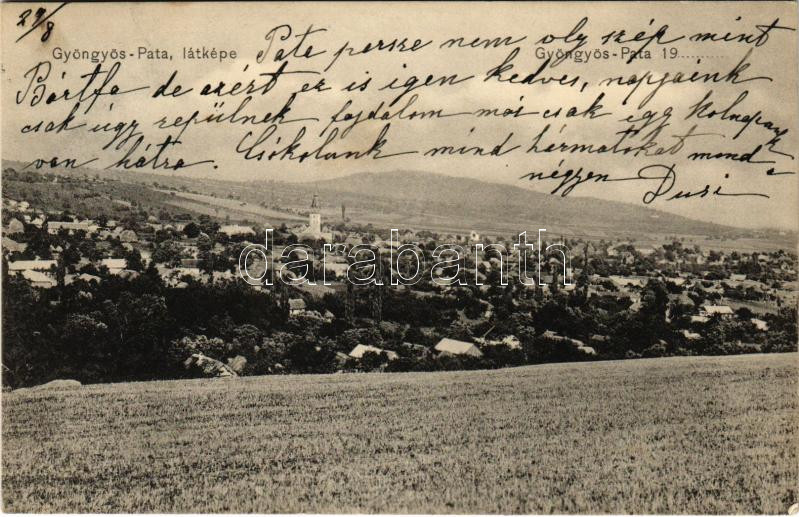 29/8
Gyöngyös-Pata, látképe
Gyöngyös-Pata 19
Pata persze nem oly szép mint
Bártfa de azért ez is igen kedves, napjaink
csak úgy repülnek fájdalom már csak egy holnapunk
van hátra. Csókolunk mind hármatokat mind a
négyen Dusi
darabanth